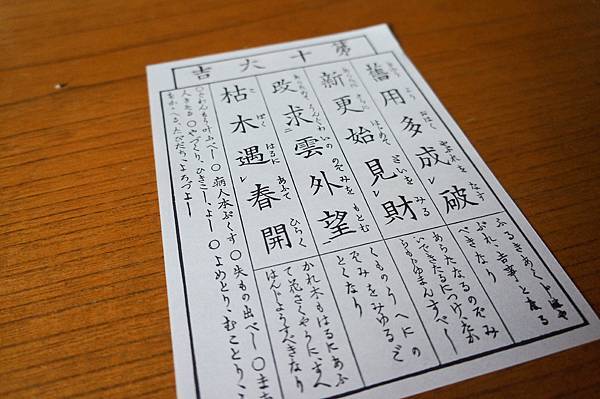 第十六吉
舊用多成破
ふるきあくじはや
ぶれ、吉事となる
べきなり
新更始見財
あらたなるのぞみ
いできたるにつけ、たか
らもじゆまんすべし
改求雲外望
くものうへにの
ぞみをみゆるご
とくなり
枯木遇春開
かれ木もはるにあふ
て花さくやうに、すへ
はんじようすべきなり
○ぐわんもう叶ふべし○病人本ぷくす○失もの出べし○まち
人きたる○やづくり、ひきこし、よし○よめとり、むことり、
をかゝへる、たびだち、よろづよし